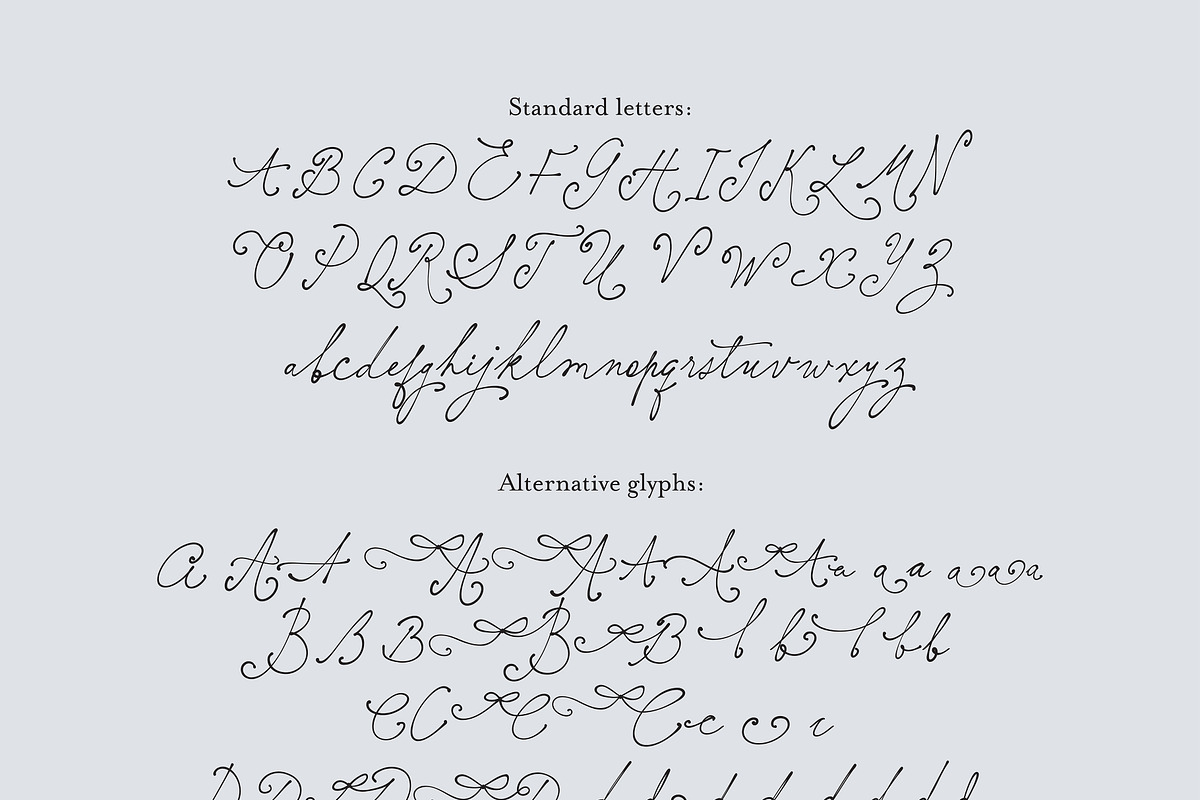 Standard letters:
A B C D E F G H I J K L M N
O P Q R S T U V W X Y Z
a b c d e f g h i j k l m n o p q r s t u v w x y z
Alternative glyphs:
A A A A A A A A a a a a a a
B B B B B b b b b b
C C C C c c c